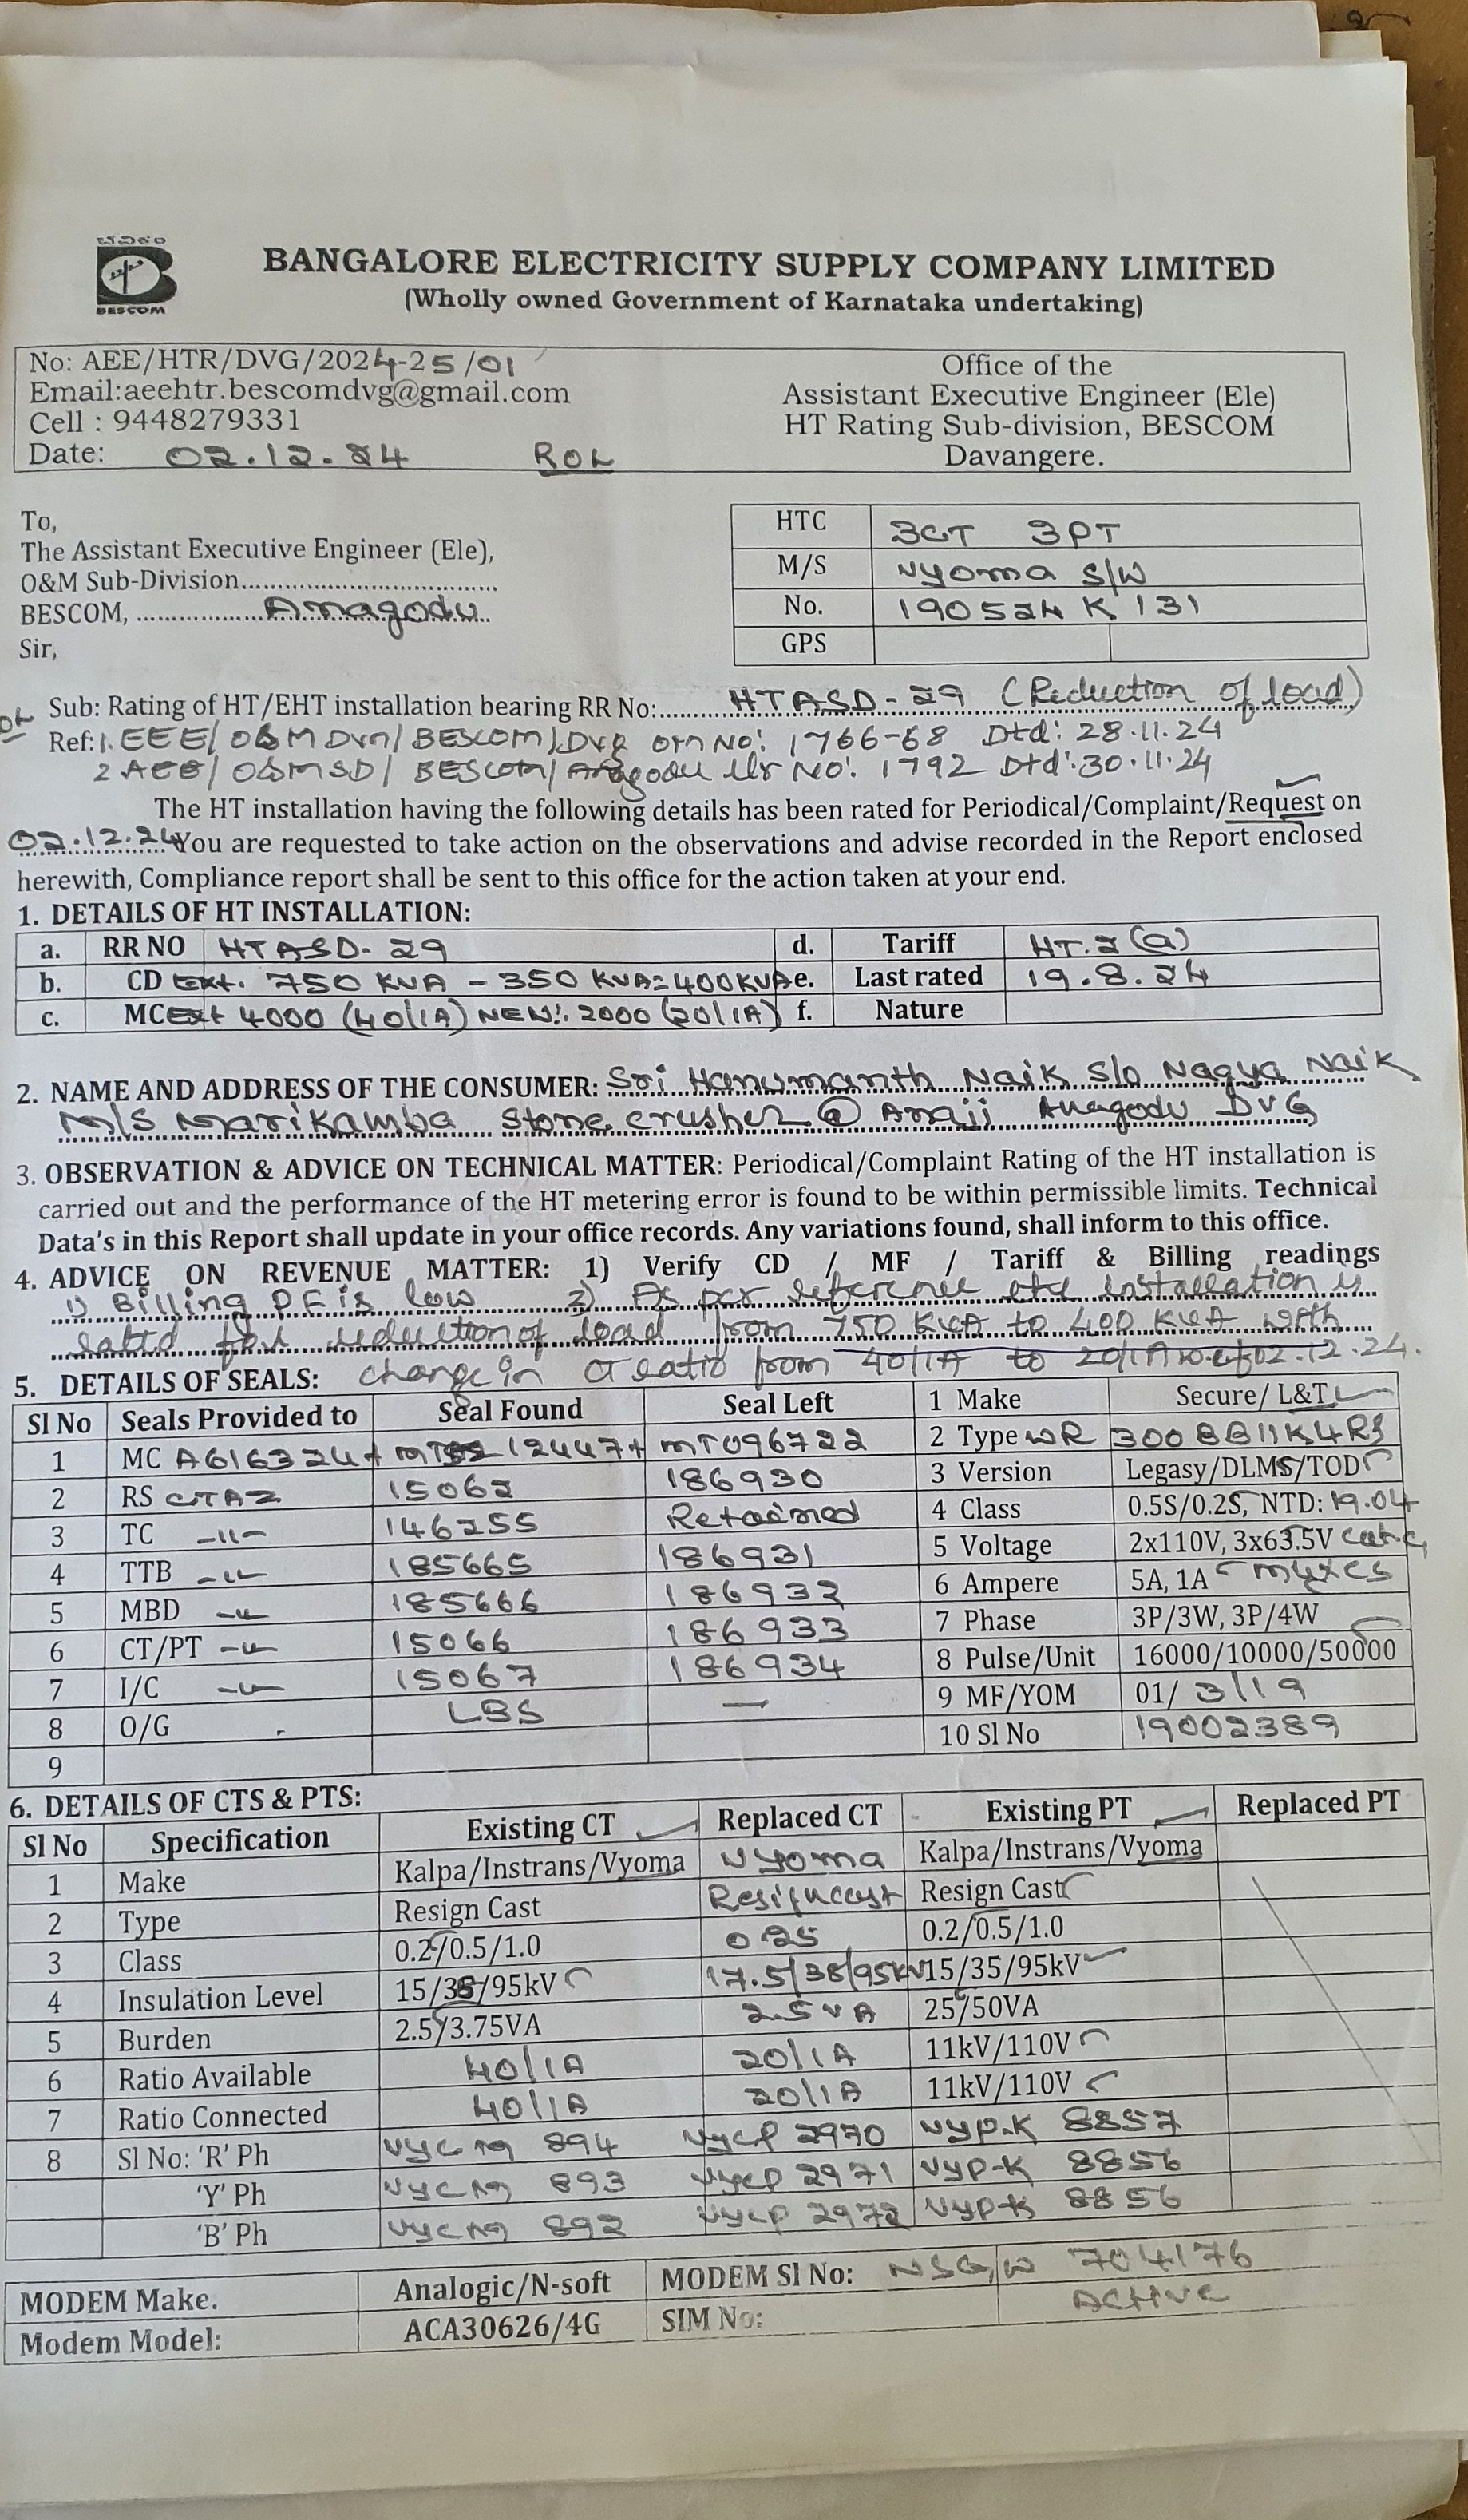 ಬೆವಿಕಂ
BESCOM
BANGALORE ELECTRICITY SUPPLY COMPANY LIMITED
(Wholly owned Government of Karnataka undertaking)
No: AEE/HTR/DVG/2024-25/01
Email:aeehtr.bescomdvg@gmail.com
Cell : 9448279331
Date: 02.12.24 ROL
Office of the
Assistant Executive Engineer (Ele)
HT Rating Sub-division, BESCOM
Davangere.
To,
The Assistant Executive Engineer (Ele),
O&M Sub-Division
BESCOM, Anagodu
Sir,
HTC 3CT 3PT
M/S Vyoma S/W
No. 190524 K 131
GPS
Sub: Rating of HT/EHT installation bearing RR No: HTASD-29 (Reduction of load)
Ref: 1. EEE/O&M Dvn/BESCOM/DVG No: 1766-68 Dtd: 28.11.24
2 AEE/O&MSD/BESCOM/Anagodu No: 1792 Dtd: 30.11.24
The HT installation having the following details has been rated for Periodical/Complaint/Request on
02.12.24 You are requested to take action on the observations and advise recorded in the Report enclosed
herewith, Compliance report shall be sent to this office for the action taken at your end.
1. DETAILS OF HT INSTALLATION:
a. RR NO HTASD-29 d. Tariff HT.2(a)
b. CD Ext. 750 KVA - 350 KVA=400KVA e. Last rated 19.8.24
c. MC Ext 4000 (40/1A) NEW: 2000 (20/1A) f. Nature
2. NAME AND ADDRESS OF THE CONSUMER: Sri Hanumanth Naik S/o Nagya Naik
M/S Marikamba Stone crusher @ Anaji Anagodu DVG
3. OBSERVATION & ADVICE ON TECHNICAL MATTER: Periodical/Complaint Rating of the HT installation is
carried out and the performance of the HT metering error is found to be within permissible limits. Technical
Data's in this Report shall update in your office records. Any variations found, shall inform to this office.
4. ADVICE ON REVENUE MATTER: 1) Verify CD / MF / Tariff & Billing readings
1) Billing PF is low 2) As per reference installation is
rated for reduction of load from 750 KVA to 400 KVA with
change in CT ratio from 40/1A to 20/1A w.e.f 02.12.24.
5. DETAILS OF SEALS:
Sl No Seals Provided to Seal Found Seal Left
1 MC A616324+ 12447+ MT096722
2 RS CTAZ 15062 186930
3 TC -11- 146255 Retained
4 TTB -11- 185665 186931
5 MBD -11- 185666 186932
6 CT/PT -11- 15066 186933
7 I/C -11- 15067 186934
8 O/G LBS —
9
1 Make Secure/ L&T
2 Type WR 300 BB11K4RS
3 Version Legasy/DLMS/TOD
4 Class 0.5S/0.2S, NTD: 19.04
5 Voltage 2x110V, 3x63.5V
6 Ampere 5A, 1A
7 Phase 3P/3W, 3P/4W
8 Pulse/Unit 16000/10000/50000
9 MF/YOM 01/ 3/19
10 Sl No 19002389
6. DETAILS OF CTS & PTS:
Sl No Specification Existing CT Replaced CT Existing PT Replaced PT
1 Make Kalpa/Instrans/Vyoma Vyoma Kalpa/Instrans/Vyoma
2 Type Resign Cast Resigncast Resign Cast
3 Class 0.2/0.5/1.0 0.2S 0.2/0.5/1.0
4 Insulation Level 15/35/95kV 17.5/38/95kV 15/35/95kV
5 Burden 2.5/3.75VA 2.5VA 25/50VA
6 Ratio Available 40/1A 20/1A 11kV/110V
7 Ratio Connected 40/1A 20/1A 11kV/110V
8 Sl No: 'R' Ph 894 VYCP 2970 VYP-K 8857
'Y' Ph 893 VYCP 2971 VYP-K 8856
'B' Ph 892 VYCP 2972 VYP-K 8856
MODEM Make. Analogic/N-soft MODEM Sl No: NSGW 704176
Modem Model: ACA30626/4G SIM No: Active